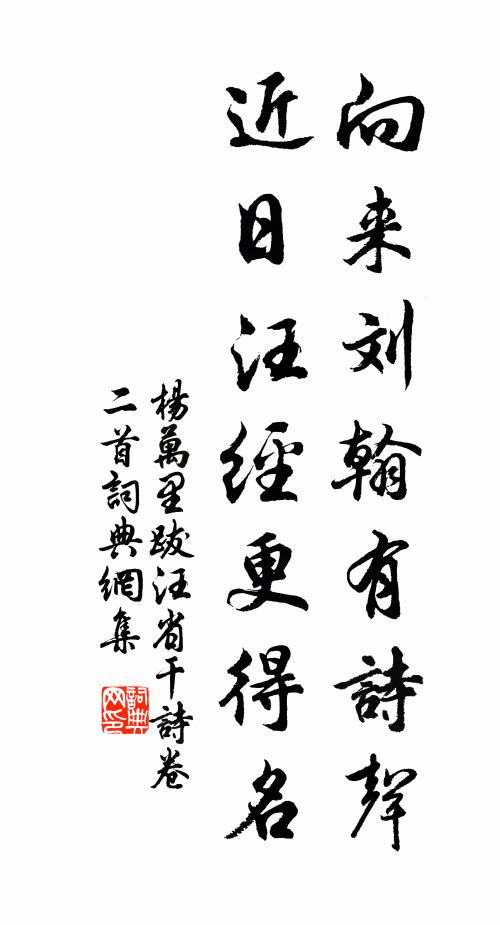 向来刘翰有詩聲
近日汪經更得名
楊萬里跋汪省干詩卷
二首詞典網集
詞典
网印